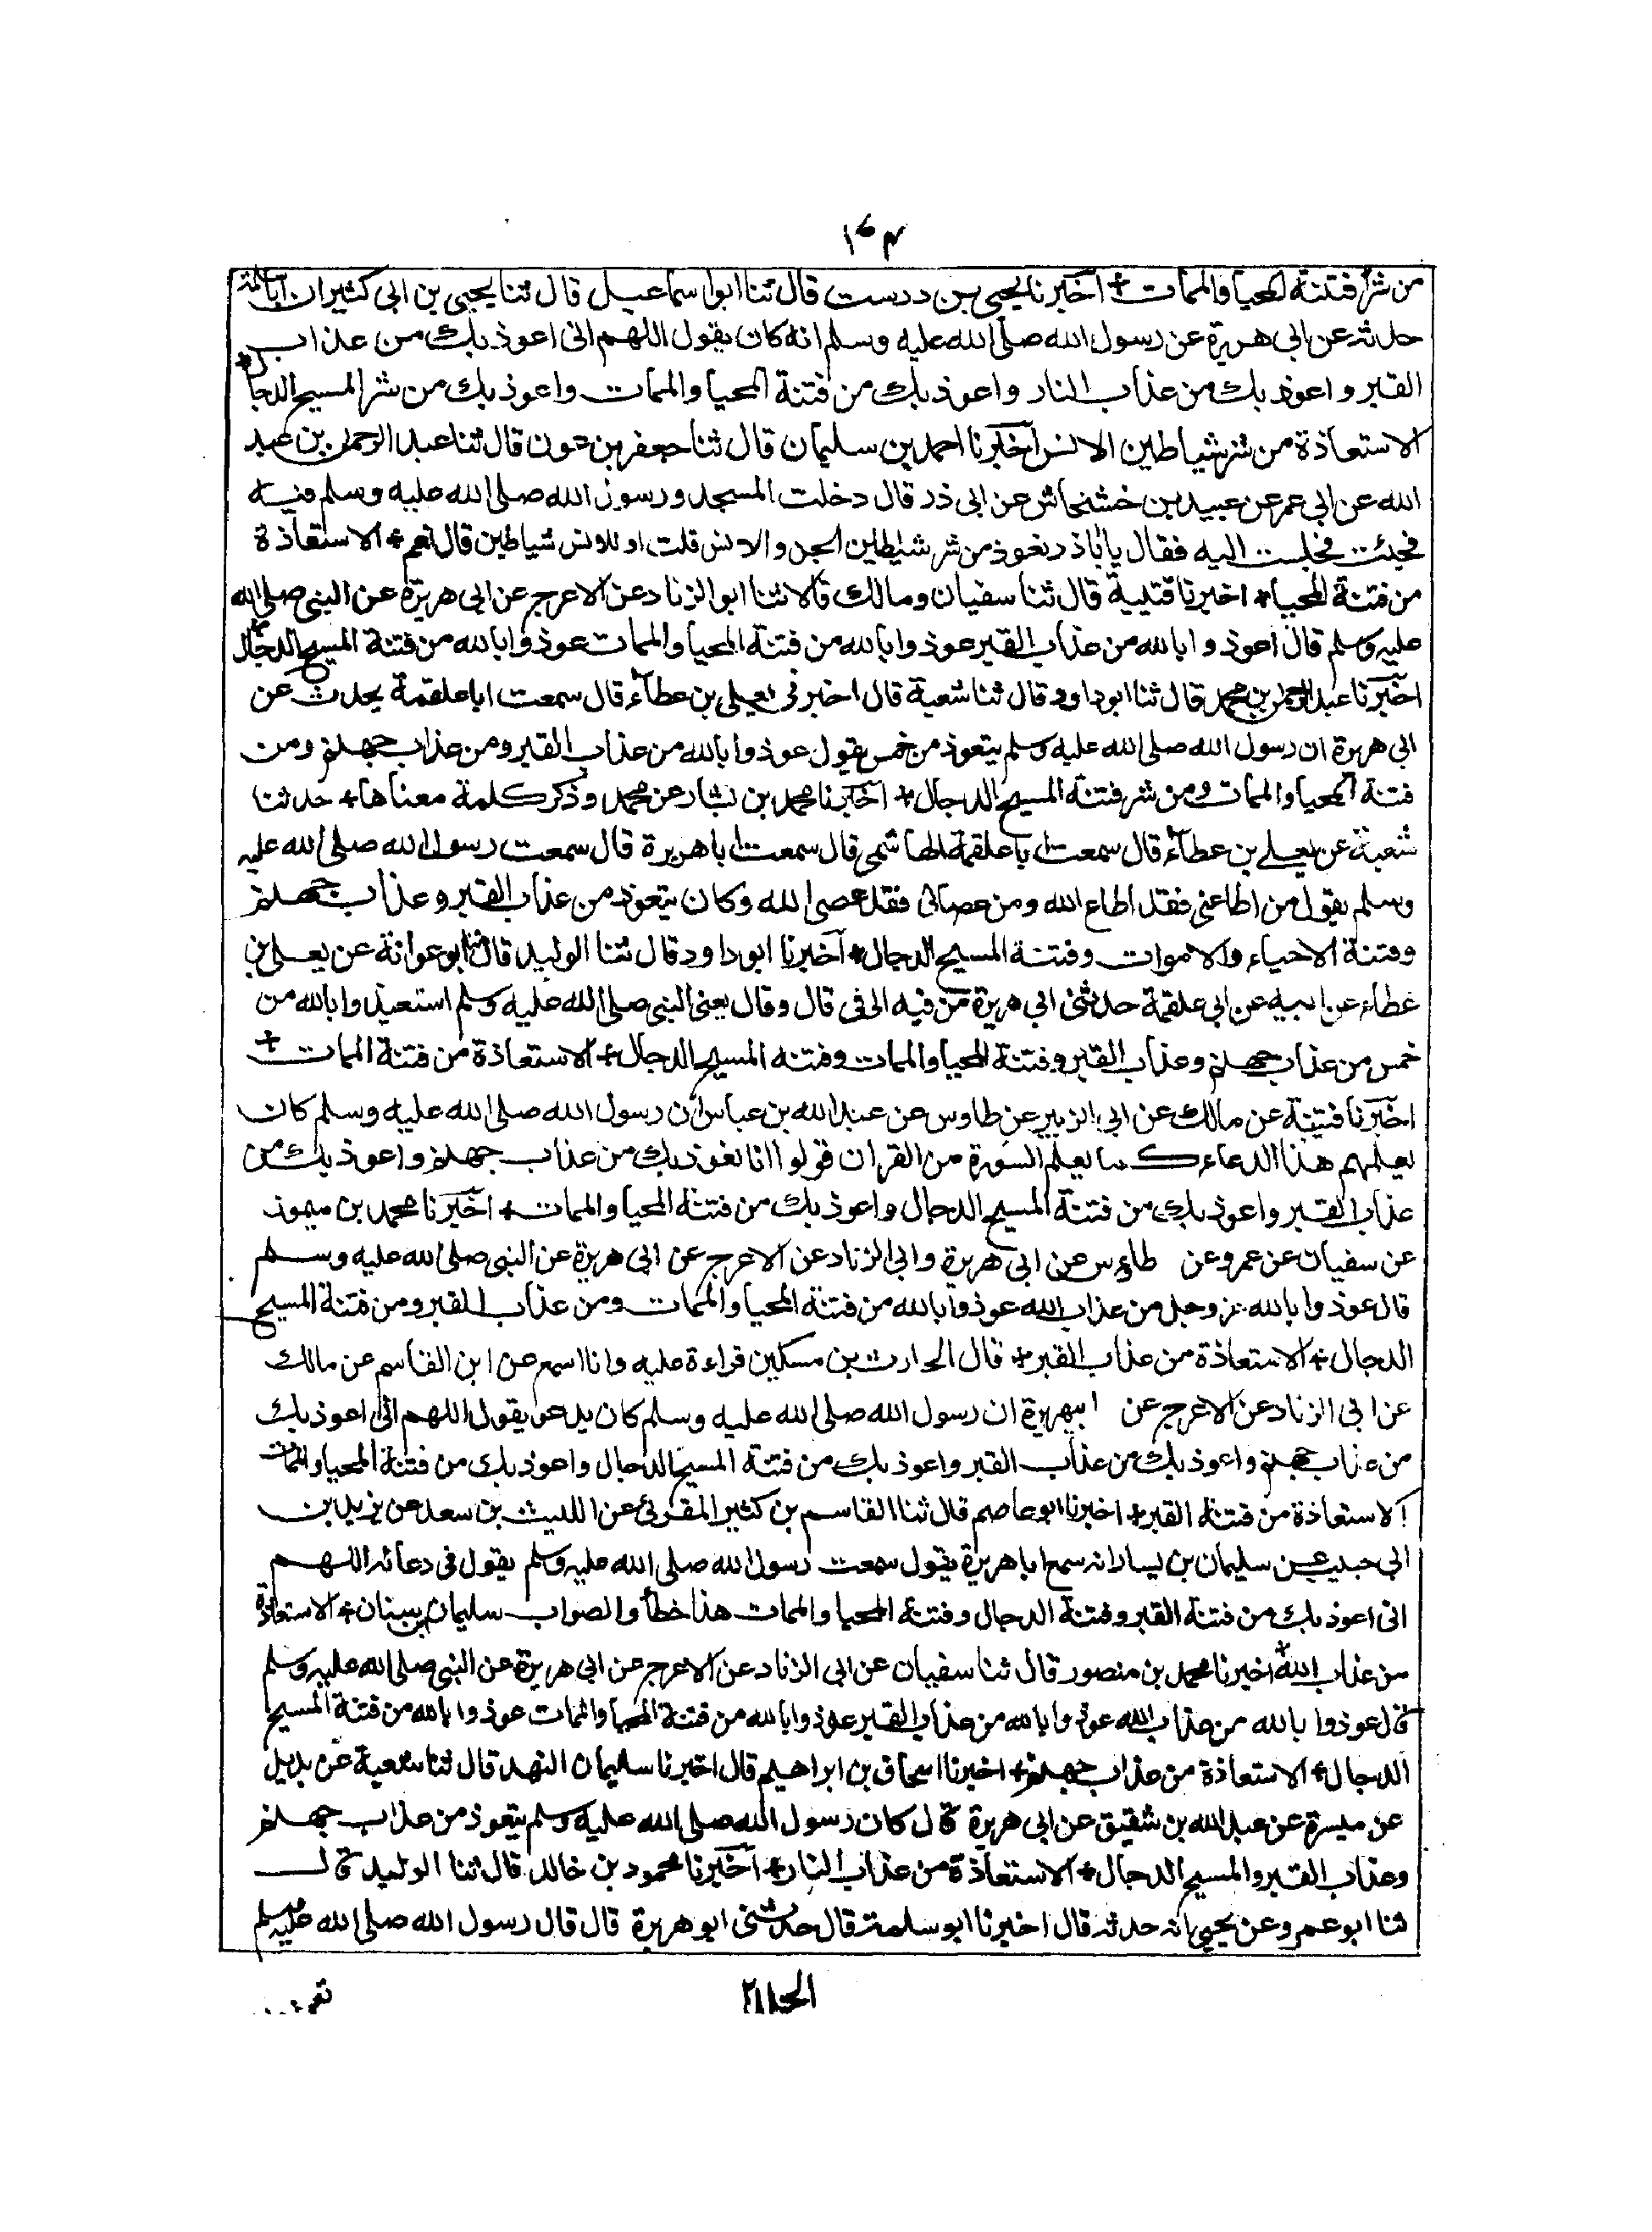 من شر فتنة المحيا والممات + اخبرنا يحيى بن درست قال ثنا ابو اسماعيل قال ثنا يحيى بن ابي كثير ان ابا سلمة
حدثه عن ابي هريرة عن رسول الله صلى الله عليه وسلم انه كان يقول اللهم انى اعوذ بك من عذاب
القبر واعوذ بك من عذاب النار واعوذ بك من فتنة المحيا والممات واعوذ بك من شر المسيح الدجال +
الاستعاذة من شر شياطين الانس اخبرنا احمد بن سليمان قال ثنا جعفر بن عون قال ثنا عبد الرحمن بن عبد
الله عن ابى عمر عن عبيد بن خشخاش عن ابى ذر قال دخلت المسجد ورسول الله صلى الله عليه وسلم فيه
فجئت فجلست اليه فقال ياباذر نعوذ من شر شيطلين الجن والانس قلت او للونس شياطين قال نعم + الاستعاذة
من فتنة المحيا + اخبرنا قتيبة قال ثنا سفيان ومالك قالا ثنا ابو الزناد عن الاعرج عن ابى هريرة عن النبى صلى الله
عليه وسلم قال اعوذوا بالله من عذاب القبر عوذوا بالله من فتنة المحيا والممات عوذوا بالله من فتنة المسيح الدجال +
اخبرنا عبد الرحمن بن محمد قال ثنا ابو داود قال ثنا شعبة قال اخبرنى يعلى بن عطاء قال سمعت ابا علقمة يحدث عن
ابى هريرة ان رسول الله صلى الله عليه وسلم يتعوذ من خمس يقول عوذوا بالله من عذاب القبر ومن عذاب جهنم ومن
فتنة المحيا والممات ومن شر فتنة المسيح الدجال + اخبرنا محمد بن بشار عن محمد وذكر كلمة معناها + حدثنا
شعبة عن يعلى بن عطاء قال سمعت ابا علقمة الهاشمى قال سمعت ابا هريرة قال سمعت رسول الله صلى الله عليه
وسلم يقول من اطاعنى فقد اطاع الله ومن عصانى فقد عصى الله وكان يتعوذ من عذاب القبر وعذاب جهنم
وفتنة الاحياء والاموات وفتنة المسيح الدجال + اخبرنا ابو داود قال ثنا الوليد قال ثنا ابو عوانة عن يعلى بن
عطاء عن ابيه عن ابى علقمة حدثنى ابى هريرة من فيه الى فى قال وقال يعنى النبى صلى الله عليه وسلم استعيذوا بالله من
خمس من عذاب جهنم وعذاب القبر وفتنة المحيا والممات وفتنة المسيح الدجال + الاستعاذة من فتنة الممات +
اخبرنا قتيبة عن مالك عن ابى الزبير عن طاوس عن عبد الله بن عباس ان رسول الله صلى الله عليه وسلم كان
يعلمهم هذا الدعاء كما يعلم السورة من القران قولوا انا نعوذ بك من عذاب جهنم واعوذ بك من
عذاب القبر واعوذ بك من فتنة المسيح الدجال واعوذ بك من فتنة المحيا والممات + اخبرنا محمد بن ميمون
عن سفيان عن عمرو عن طاوس عن ابى هريرة وابى الزناد عن الاعرج عن ابى هريرة عن النبى صلى الله عليه وسلم
قال عوذوا بالله عز وجل من عذاب الله عوذوا بالله من فتنة المحيا والممات ومن عذاب القبر ومن فتنة المسيح
الدجال + الاستعاذة من عذاب القبر + قال الحارث بن مسكين قراءة عليه وانا اسمع عن ابن القاسم عن مالك
عن ابى الزناد عن الاعرج عن ابيهريرة ان رسول الله صلى الله عليه وسلم كان يدعو يقول اللهم انى اعوذ بك
من عذاب جهنم واعوذ بك من عذاب القبر واعوذ بك من فتنة المسيح الدجال واعوذ بك من فتنة المحيا والممات
الاستعاذة من فتنة القبر + اخبرنا ابو عاصم قال ثنا القاسم بن كثير المقرئ عن الليث بن سعد عن يزيد بن
ابى حبيب عن سليمان بن يسار انه سمع ابا هريرة يقول سمعت رسول الله صلى الله عليه وسلم يقول فى دعائه اللهم
انى اعوذ بك من فتنة القبر وفتنة الدجال وفتنة المحيا والممات هذا خطأ والصواب سليمان بن سنان + الاستعاذة
من عذاب الله + اخبرنا محمد بن منصور قال ثنا سفيان عن ابى الزناد عن الاعرج عن ابى هريرة عن النبى صلى الله عليه وسلم
قال عوذوا بالله من عذاب الله عوذوا بالله من عذاب القبر عوذوا بالله من فتنة المحيا والممات عوذوا بالله من فتنة المسيح
الدجال + الاستعاذة من عذاب جهنم + اخبرنا اسحاق بن ابراهيم قال اخبرنا سليمان النهد قال ثنا شعبة عن بديل
عن ميسرة عن عبد الله بن شقيق عن ابى هريرة قال كان رسول الله صلى الله عليه وسلم يتعوذ من عذاب جهنم
وعذاب القبر والمسيح الدجال + الاستعاذة من عذاب النار + اخبرنا محمود بن خالد قال ثنا الوليد قال
ثنا ابو عمرو عن يحيى انه حدثه قال اخبرنا ابو سلمة قال حدثنى ابو هريرة قال قال رسول الله صلى الله عليه وسلم